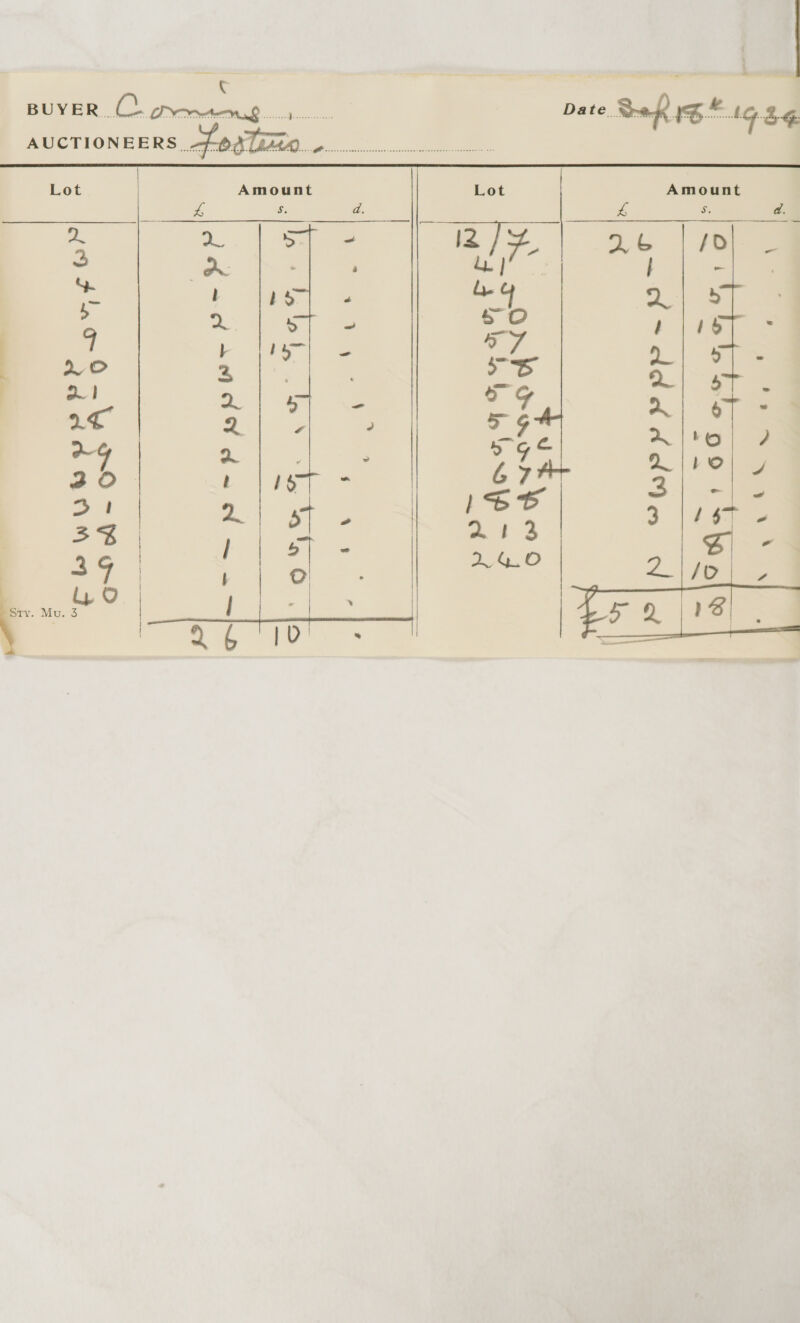 BUYER
Date 1934
AUCTIONEERS
Lot Amount Lot Amount
£ s. d. £ s. d.
2 2 5 - 12/7 26 10 -
3 2 - - 41 1 - -
4 1 15 - 49 2 5 -
5 2 5 - 50 1 15 -
9 1 15 - 57 2 5 -
20 3 - - 58 2 5 -
21 2 5 - 59 2 5 -
2 - - 59A 2 10 -
29 2 - - 59C 2 10 -
30 1 15 - 67A 3 - -
31 2 5 - 188 3 15 -
38 1 5 - 213 8 -
39 1 0 - 240 2 10 -
40 1 - - £52 18 -
STY. MU. 3
26 10 -